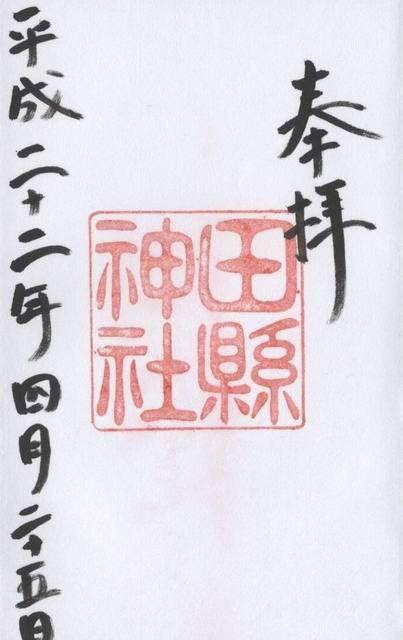 奉拝
田縣
神社
平成二十二年四月二十五日